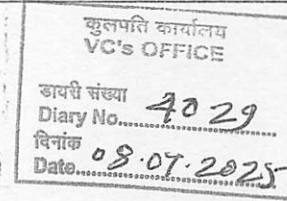 कुलपति कार्यालय
VC's OFFICE
डायरी संख्या
Diary No......4029
दिनांक
Date...08.07.2025